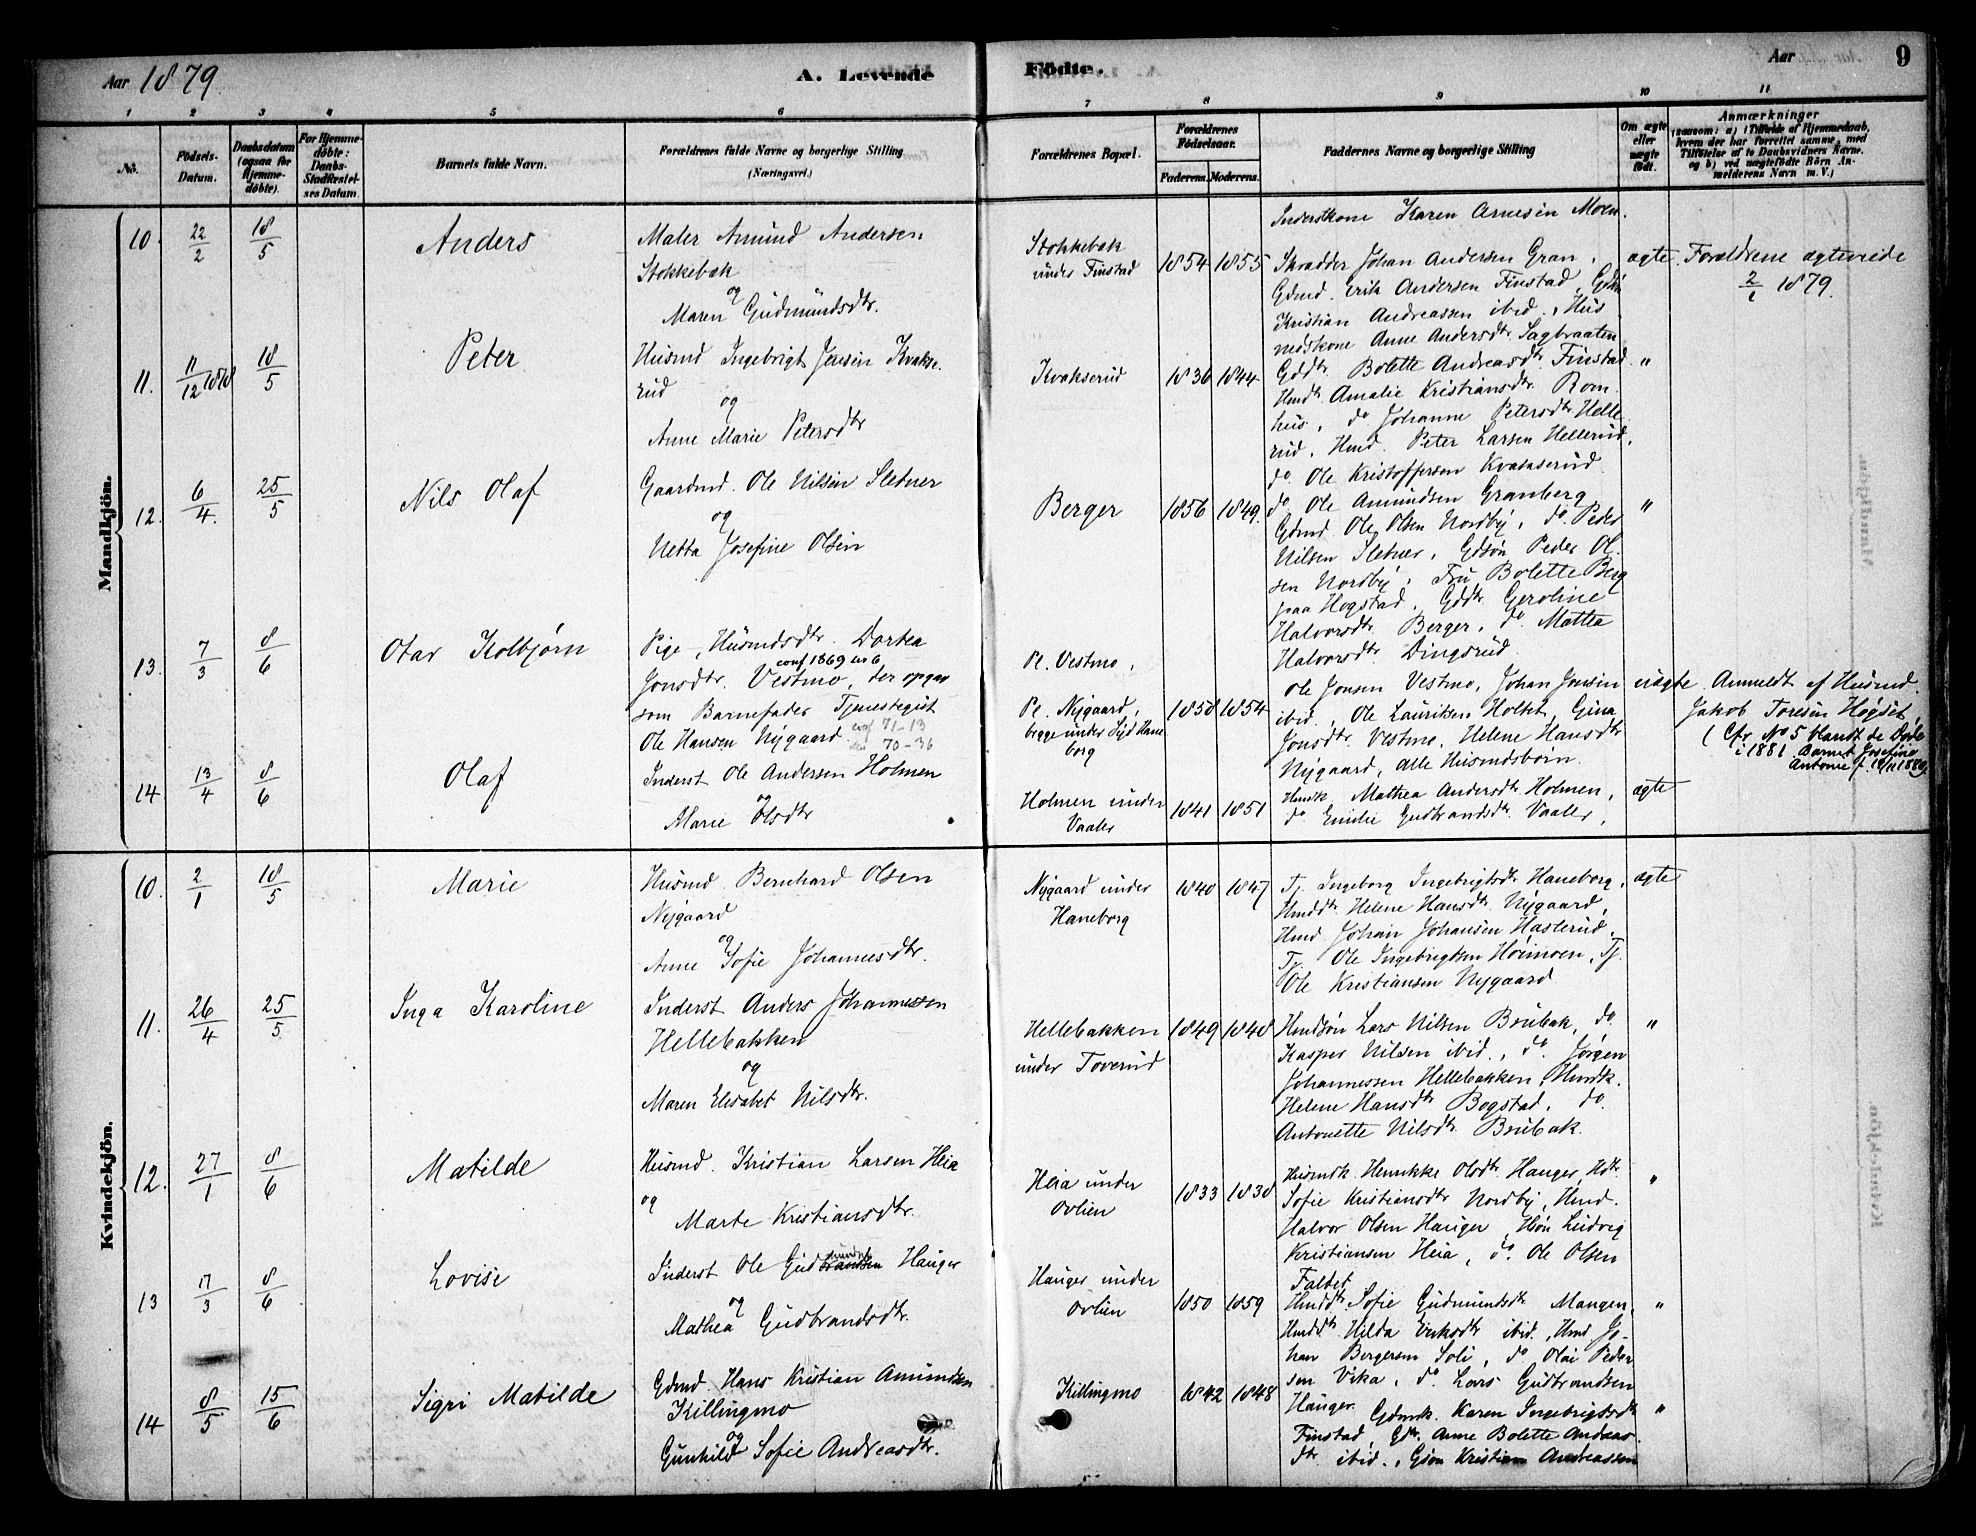 Aar 1879
A. Levende
Födte.
Aar
9
1 2 3 4 5 6 7 8 9 10 11
No.
Födsels-
Datum.
Daabsdatum
(ogsaa for
Hjemme-
döbte).
For Hjemme-
döbte:
Daabs-
Stadfæstel-
ses Datum
Barnets fulde Navn.
Forældrenes fulde Navne og borgerlige Stilling
(Næringsvei.)
Forældrenes Bopæl.
Forældrenes
Födselsaar.
Faderens. Moderens.
Faddernes Navne og borgerlige Stilling
Om ægte
eller
uægte
födt.
Anmærkninger
(saasom: a) i Tilfælde af Hjemmedaab,
hvem der har forrettet samme, med
Tilföielse af to Daabsvidners Navne.
og b) ved uægtefödte Börn An-
melderens Navn m. V.)
Mandkjön.
10. 22/2 18/5 Anders
Maler Amund Andersen
Stokkebæk
og
Maren Gudmundsdtr.
Stokkebæk
under Finstad
1854 1855
Inderstkone Karen Arnesen Moen.
Skrædder Johan Andersen Gran,
Gdmd. Erik Andersen Finstad, Gdsøn
Kristian Andreassen ibid., Hus
mdskone Anne Andersdtr Sagbraaten
ægte. Forældrene ægteviede
2/1 1879.
11. 11/12 1878 18/5 Peter
Husmd Ingebrigt Jensen Kvakse-
rud
og
Anne Marie Petersdtr
Kvakserud
1836 1844
Gddtr. Bolette Andreasdtr. Finstad
Hmdtr. Amalie Kristiansdtr. Rom-
hus, do Johanne Petersdtr Helle
rud, Hmd. Peter Larsen Hellerud,
do Ole Kristoffersen Kvakserud
"
12. 6/4. 25/5 Nils Olaf
Gaardmd. Ole Nilsen Sletner
og
Netta Josefine Olsen
Berger
1856 1849.
do Ole Amundsen Granberg
Gdmd Ole Olsen Nordby, do. Peder
Nilsen Sletner, Gdsøn Peder Ol-
sen Nordby, Fru Bolette Berg
paa Hogstad, Gddtr. Geroline
Halvorsdtr. Berger, do Mathea
Halvorsdtr. Dingsrud
"
13. 7/3 8/6 Otar Kolbjørn
Pige, Husmdsdtr. Dortea
conf 1869 no 6
Jonsdtr. Vestmo, der opgav
som Barnefader Tjenestegut
Ole Hansen Nygaard. 71-13
70-36
Pl. Vestmo,
Pl. Nygaard,
begge under Syd Hane
borg
1850 1854
Ole Jonsen Vestmo, Johan Jonsen
ibid., Ole Lauritsen Holtet, Gina
Jonsdtr. Vestmo, Helene Hansdtr
Nygaard, alle Husmdsbørn.
uægte Anmeldt af Husmd.
Jakob Toresen Høgset,
(Cfr. No 5 blandt de Døde
i 1881 Barnet Josefine
Antonie f.
14 13/4 8/6 Olaf
Inderst Ole Andersen Holmen
og
Marie Olsdtr
Holmen under
Vaaler
1841 1851
Hmdk Mathea Andersdtr. Holmen,
do Emilie Gudbrandsdtr. Vaaler,
ægte
Kvindekjön.
10. 2/1 18/5 Marie
Husmd. Bernhard Olsen
Nygaard
og
Anne Sofie Johannesdtr.
Nygaard under
Haneborg
1840 1847
Tj. Ingeborg Ingebrigtsdtr. Haneborg,
Hmddtr. Helene Hansdtr. Nygaard,
Hmd. Johan Johansen Haslerud,
Tj. Ole Ingebrigtsen Høimoen, Tj.
Ole Kristiansen Nygaard
ægte
11. 26/4 25/5 Inga Karoline
Inderst Anders Johannessen
Hellebækken
og
Maren Elisabet Nilsdtr.
Hellebækken
under Toverud
1849 1848
Hmdsøn Lars Nilsen Brubæk, do.
Kasper Nilsen ibid., do. Jørgen
Johannessen Hellebækken, Hmdk.
Helene Hansdtr Bogstad, do.
Antonette Nilsdtr. Brubæk.
"
12. 27/1 8/6 Matilde
Husmd. Kristian Larsen Heia
og
Marte Kristiansdtr.
Heia under
Ovlien
1833 1838
Husmdk. Henrikke Olsdtr. Hauger, Hdtr.
Sofie Kristiansdtr Nordby, Hmd.
Halvor Olsen Hauger, Hsøn Ludvig
Kristiansen Heia, do. Ole Olsen
Faltet
"
13 17/3 8/6 Lovise
Inderst Ole Gudbrandsen Hauger
og
Mathea Gudbrandsdtr.
Hauger under
Ovlien
1850 1859
Hmddtr. Sofie Gudmundsdtr Mangen,
Hmddtr. Hilda Eriksdtr ibid., Hmd Jo-
han Bergersen Soli, do Olai Peder
sen Vika, do. Lars Gudbrandsen
Hauger.
"
14 8/5 15/6 Sigri Matilde
Gdmd. Hans Kristian Amundsen
Killingmo
og
Gunhild Sofie Andreasdtr.
Killingmo
1842 1848
Gdmk. Karen Ingebrigtsdtr
Finstad, Gdtr. Anne Bolette Andreas-
dtr ibid., Gsøn Kristian Andreassen
"